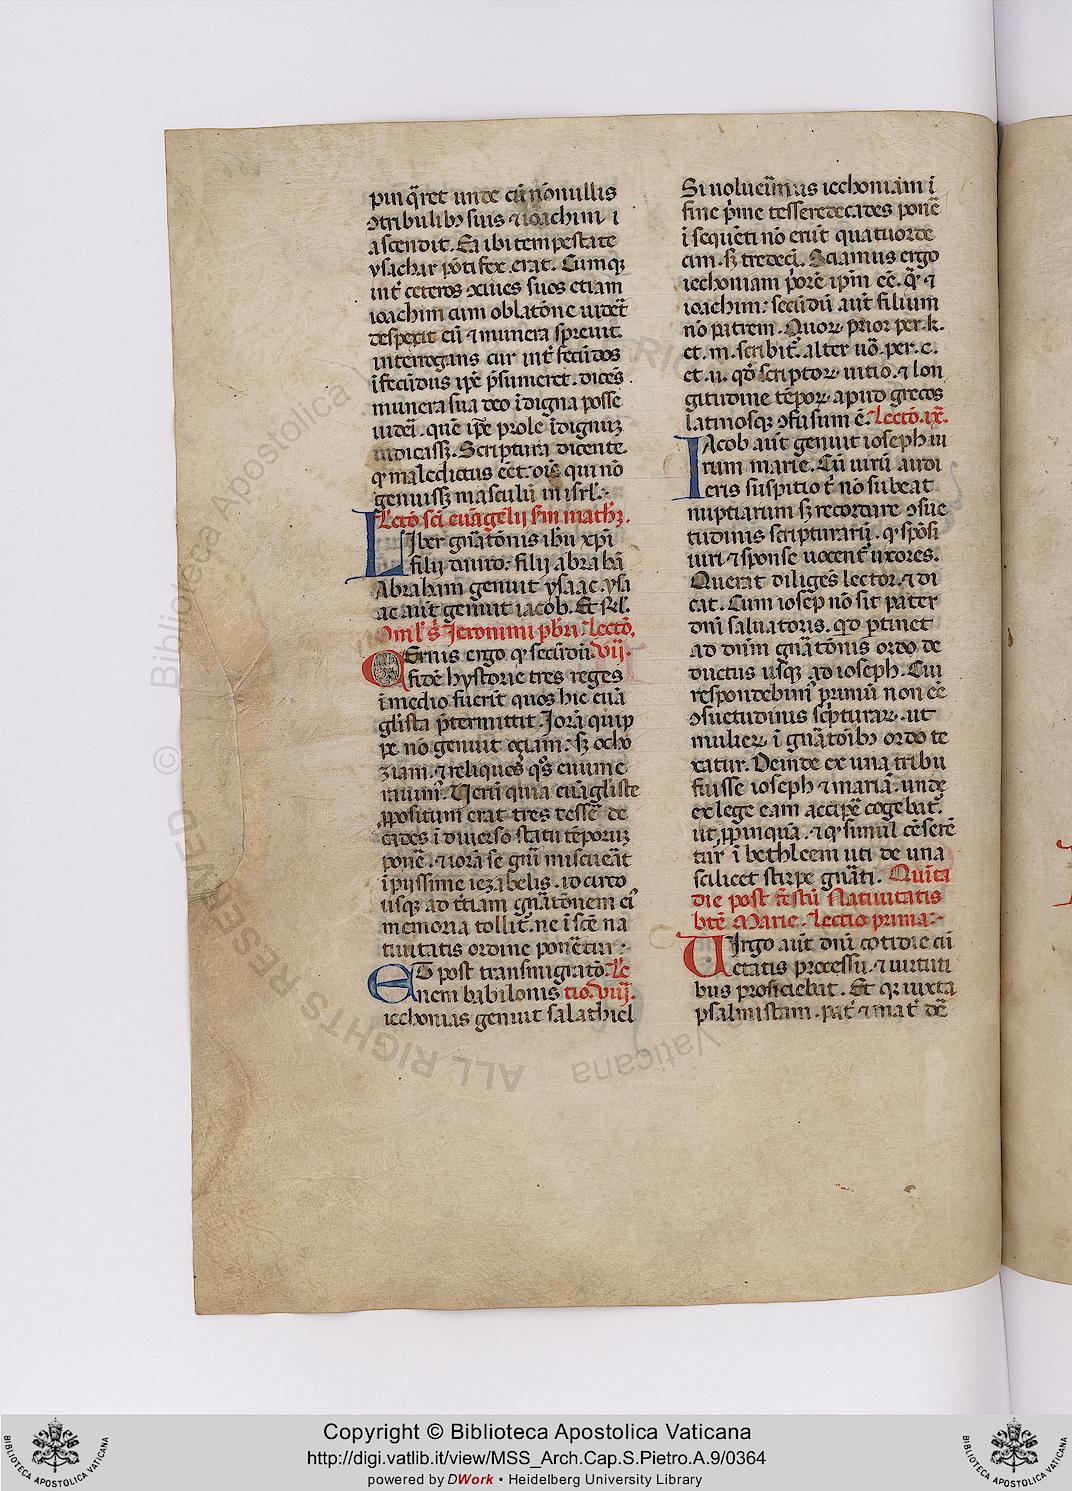 pinq̃ret unde cũ nõnullis
ↄtribulibꝫ suis ⁊ ioachim i
ascendit. Ea ibi tempestate
ysachar põtifex erat. Cumqꝫ
int̃ ceteros ↄcives suos etiam
ioachim cum oblatõne videt̃
despexit eũ ⁊ munera sprevit.
interrogans cur int̃ fecũdos
ĩfecũdus ip̃e p̃sumeret. dicẽs
munera sua deo ĩdigna posse
videri. que ip̃e prole ĩdignũ
iudicassꝫ. Scriptura dicente.
qꝫ maledictus eẽt. oĩs qui nõ
genuissꝫ masculũ in isrl̃.
Lectõ sc̃i euãgelij s̃m math̃.
LIber gñatõnis ihũ xp̃i
filij dauid: filij abrahã
Abraham genuit ysaac. ysa
ac aut̃ genuit iacob. Et rl̃.
Omel̃ s̃. Ieronimi p̃bri. Lectõ.
CErnis ergo qꝫ secũdũ vii.
fidẽ hystorie tres reges
ĩ medio fuerĩt quos hic euã
glista p̃termittit. Iorã quip
pe nõ genuit oziam: sꝫ ocho
ziam. ⁊ reliquos q̃s enume
ravimꝰ. Verũ quia euãgliste
ꝓpositum erat tres tessẽ de
cades ĩ diverso statu tẽporũ
ponẽ. ⁊ iorã se gñi miscueãt
ĩpijssime iezabelis. idcirco
usqꝫ ad t̃tiam gñatõnem eiꝰ
memoria tollit̃. ne ĩ scẽ na
tivitatis ordine ponẽtur.
ET post transmigratõ. Lc
nem babilonis tio. viij.
iechonias genuit salathiel
Si voluerimꝰ iechoniam ĩ
fine p̃me tesseredecades ponẽ
ĩ sequẽti nõ erũt quatuorde
cim. sꝫ tredecĩ. Sciamus ergo
iechoniam p̃orẽ ip̃m eẽ. q̃ ⁊
ioachim: secũdũ aut̃ filium
nõ patrem. Quoꝝ prior per. k.
et. m. scribit̃. alter võ. per. c.
et. n. qd̃ scriptoꝝ vitio. ⁊ lon
gitudine tẽpoꝝ apud grecos
latinosqꝫ ↄfusum ẽ. Lectõ. ix.
IAcob aut̃ genuit ioseph vi
rum marie. Cũ virũ audi
eris suspitio t̃ nõ subeat
nuptiarum sꝫ recordare ↄsue
tudinis scripturarũ. qꝫ spõsi
viri ⁊ sponse vocent̃ uxores.
Querat diligẽs lector. ⁊ di
cat. Cum iosep nõ sit pater
dñi salvatoris. qd ꝑtinet
ad dñm gñatõnis ordo de
ductus usqꝫ ad ioseph. Cui
respondebimꝰ primũ non eẽ
ↄsuetudinis sc̃pturaꝝ. ut
mulieꝝ ĩ gñatõibꝫ ordo te
xatur. Deinde ex una tribu
fuisse ioseph ⁊ mariã. unde
ex lege eam accipẽ cogebat̃.
ut ꝓpinquã. ⁊ qꝫ simul cẽserẽ
tur ĩ bethleem uti de una
scilicet stirpe gñati. Quĩta
die post festũ Nativitatis
btẽ Marie. Lectio prima.
VIrgo aut̃ dñi cotidie cũ
etatis processu. ⁊ virtuti
bus proficiebat. Et qꝛ iuxta
psalmistam. pat̃ ⁊ mat̃ dẽ
© Biblioteca Apostolica Vaticana
ALL RIGHTS RESERVED
Copyright © Biblioteca Apostolica Vaticana
http://digi.vatlib.it/view/MSS_Arch.Cap.S.Pietro.A.9/0364
powered by DWork • Heidelberg University Library
BIBLIOTECA APOSTOLICA VATICANA
BIBLIOTECA APOSTOLICA VATICANA